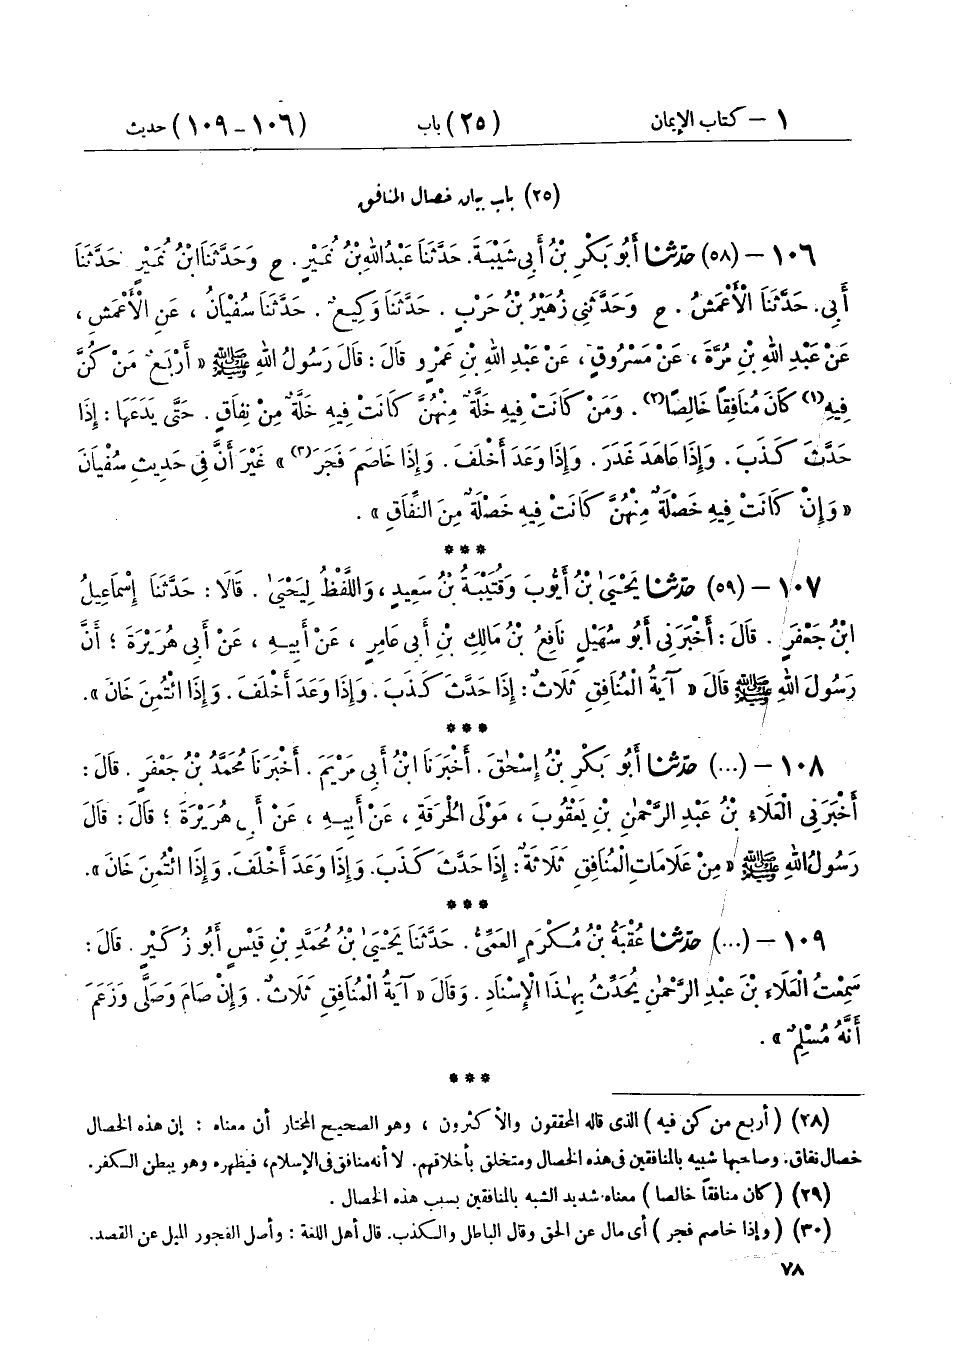 ١ – كتاب الإيمان (٢٥) باب (١٠٦ – ١٠٩) حديث
(٢٥) باب بيان خصال المنافق
١٠٦ – (٥٨) حَدَّثَنَا أَبُو بَكْرِ بْنُ أَبِي شَيْبَةَ. حَدَّثَنَا عَبْدُ اللهِ بْنُ نُمَيْرٍ. ح وَحَدَّثَنَا ابْنُ نُمَيْرٍ. حَدَّثَنَا
أَبِي. حَدَّثَنَا الْأَعْمَشُ. ح وَحَدَّثَنِي زُهَيْرُ بْنُ حَرْبٍ. حَدَّثَنَا وَكِيعٌ. حَدَّثَنَا سُفْيَانُ، عَنِ الْأَعْمَشِ،
عَنْ عَبْدِ اللهِ بْنِ مُرَّةَ، عَنْ مَسْرُوقٍ، عَنْ عَبْدِ اللهِ بْنِ عَمْرٍو قَالَ: قَالَ رَسُولُ اللهِ ﷺ « أَرْبَعٌ مَنْ كُنَّ
فِيهِ(١) كَانَ مُنَافِقًا خَالِصًا(٢). وَمَنْ كَانَتْ فِيهِ خَلَّةٌ مِنْهُنَّ كَانَتْ فِيهِ خَلَّةٌ مِنْ نِفَاقٍ. حَتَّى يَدَعَهَا: إِذَا
حَدَّثَ كَذَبَ. وَإِذَا عَاهَدَ غَدَرَ. وَإِذَا وَعَدَ أَخْلَفَ. وَإِذَا خَاصَمَ فَجَرَ(٣) » غَيْرَ أَنَّ فِي حَدِيثِ سُفْيَانَ
« وَإِنْ كَانَتْ فِيهِ خَصْلَةٌ مِنْهُنَّ كَانَتْ فِيهِ خَصْلَةٌ مِنَ النِّفَاقِ ».
***
١٠٧ – (٥٩) حَدَّثَنَا يَحْيَىٰ بْنُ أَيُّوبَ وَقُتَيْبَةُ بْنُ سَعِيدٍ، وَاللَّفْظُ لِيَحْيَىٰ. قَالَا: حَدَّثَنَا إِسْمَاعِيلُ
ابْنُ جَعْفَرٍ. قَالَ: أَخْبَرَنِي أَبُو سُهَيْلٍ نَافِعُ بْنُ مَالِكِ بْنِ أَبِي عَامِرٍ، عَنْ أَبِيهِ، عَنْ أَبِي هُرَيْرَةَ؛ أَنَّ
رَسُولَ اللهِ ﷺ قَالَ « آيَةُ الْمُنَافِقِ ثَلَاثٌ: إِذَا حَدَّثَ كَذَبَ. وَإِذَا وَعَدَ أَخْلَفَ. وَإِذَا ائْتُمِنَ خَانَ ».
***
١٠٨ – (...) حَدَّثَنَا أَبُو بَكْرِ بْنُ إِسْحَٰقَ. أَخْبَرَنَا ابْنُ أَبِي مَرْيَمَ. أَخْبَرَنَا مُحَمَّدُ بْنُ جَعْفَرٍ. قَالَ:
أَخْبَرَنِي الْعَلَاءُ بْنُ عَبْدِ الرَّحْمَٰنِ بْنِ يَعْقُوبَ، مَوْلَى الْحُرَقَةِ، عَنْ أَبِيهِ، عَنْ أَبِي هُرَيْرَةَ؛ قَالَ: قَالَ
رَسُولُ اللهِ ﷺ « مِنْ عَلَامَاتِ الْمُنَافِقِ ثَلَاثَةٌ: إِذَا حَدَّثَ كَذَبَ. وَإِذَا وَعَدَ أَخْلَفَ. وَإِذَا ائْتُمِنَ خَانَ ».
***
١٠٩ – (...) حَدَّثَنَا عُقْبَةُ بْنُ مُكْرَمٍ الْعَمِّيُّ. حَدَّثَنَا يَحْيَىٰ بْنُ مُحَمَّدِ بْنِ قَيْسٍ أَبُو زُكَيْرٍ. قَالَ:
سَمِعْتُ الْعَلَاءَ بْنَ عَبْدِ الرَّحْمَٰنِ يُحَدِّثُ بِهَٰذَا الْإِسْنَادِ. وَقَالَ « آيَةُ الْمُنَافِقِ ثَلَاثٌ. وَإِنْ صَامَ وَصَلَّى وَزَعَمَ
أَنَّهُ مُسْلِمٌ ».
***
(٢٨) ( أربع من كن فيه ) الذى قاله المحققون والأكثرون ، وهو الصحيح المختار أن معناه : إن هذه الخصال
خصال نفاق. وصاحبها شبيه بالمنافقين فى هذه الخصال ومتخلق بأخلاقهم. لا أنه منافق فى الإسلام، فيظهره وهو يبطن الكفر.
(٢٩) ( كان منافقاً خالصا ) معناه شديد الشبه بالمنافقين بسبب هذه الخصال .
(٣٠) ( وإذا خاصم فجر ) أى مال عن الحق وقال الباطل والكذب. قال أهل اللغة : وأصل الفجور الميل عن القصد.
٧٨